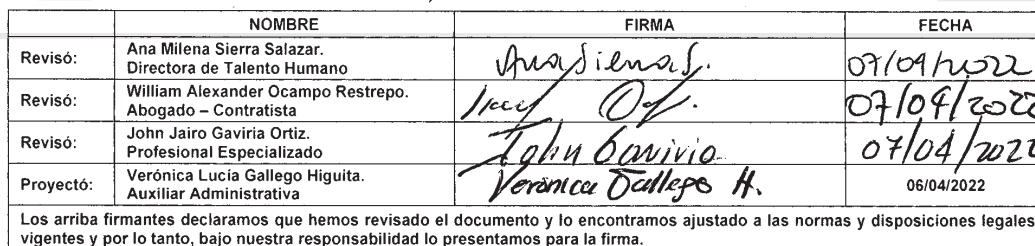 NOMBRE FIRMA FECHA
Revisó: Ana Milena Sierra Salazar.
Directora de Talento Humano
Ana Sierra S. 07/04/2022
Revisó: William Alexander Ocampo Restrepo.
Abogado – Contratista
07/04/2022
Revisó: John Jairo Gaviria Ortiz.
Profesional Especializado
John Gaviria 07/04/2022
Proyectó: Verónica Lucía Gallego Higuita.
Auxiliar Administrativa
Verónica Gallego H. 06/04/2022
Los arriba firmantes declaramos que hemos revisado el documento y lo encontramos ajustado a las normas y disposiciones legales
vigentes y por lo tanto, bajo nuestra responsabilidad lo presentamos para la firma.